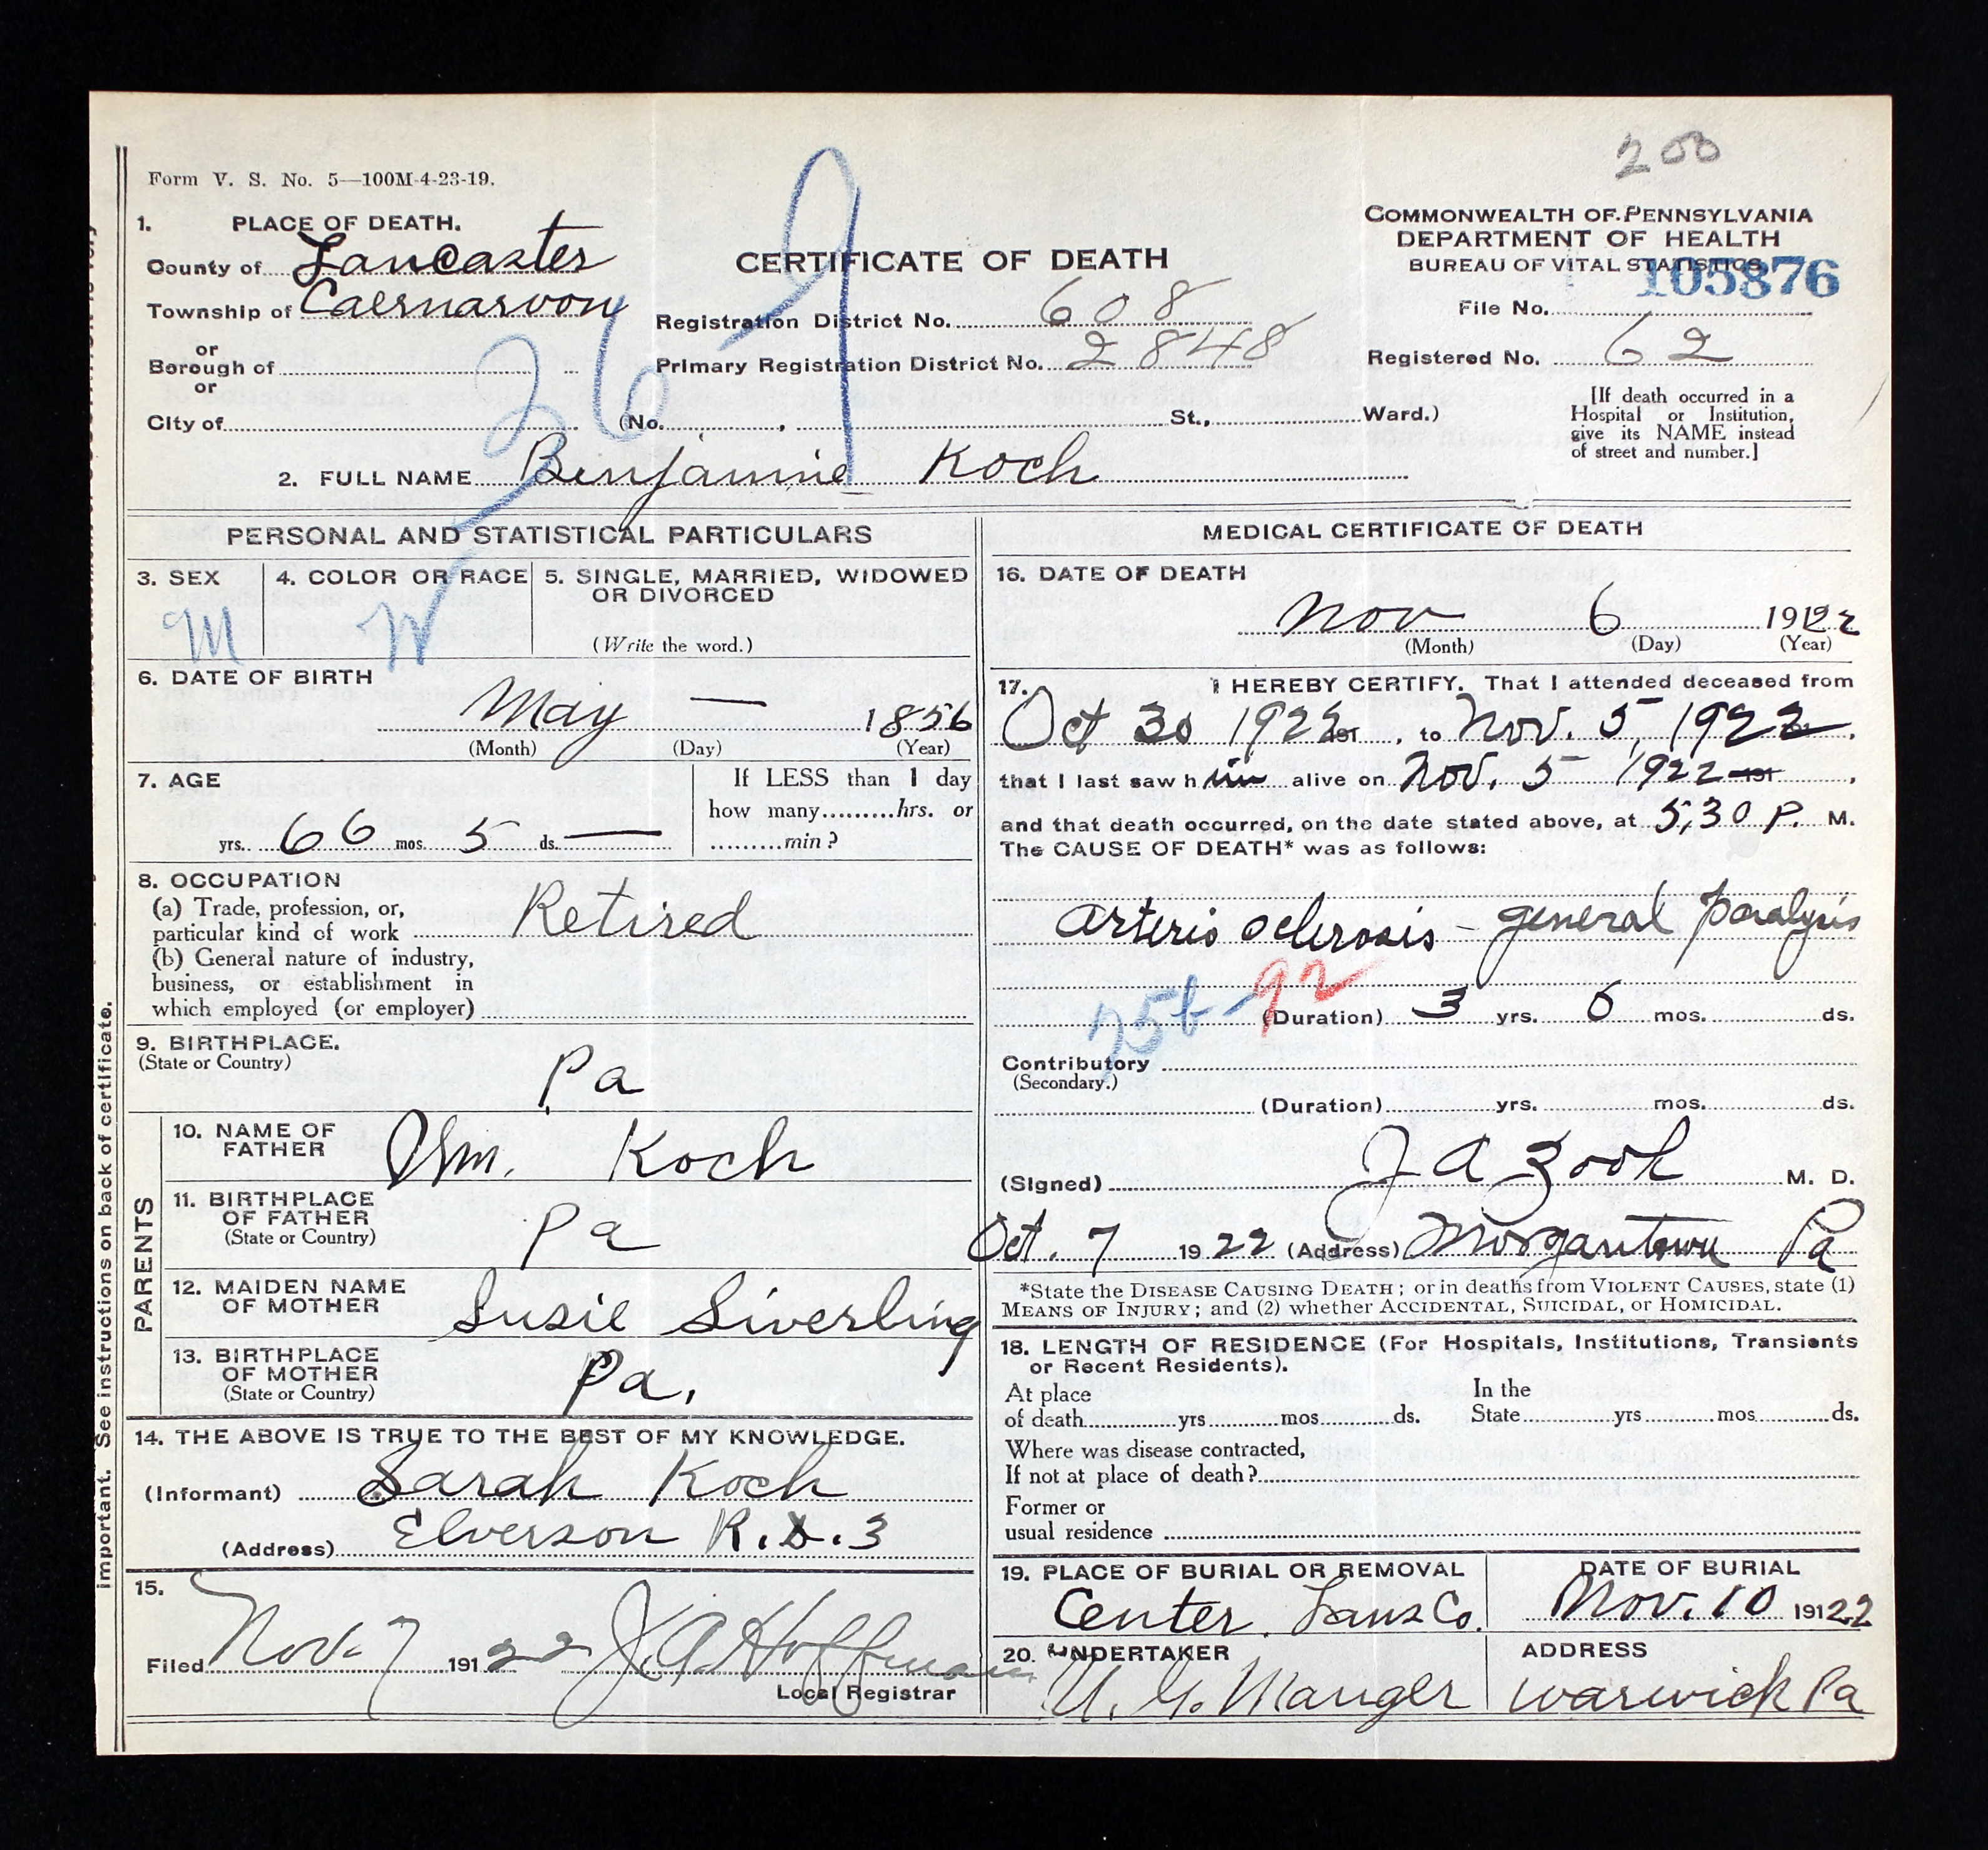 200
Form V. S. No. 5—100M-4-23-19.
1. PLACE OF DEATH.
County of Lancaster
Township of Caernarvon
or
Borough of
or
City of
CERTIFICATE OF DEATH
Registration District No. 608
Primary Registration District No. 2848
(No. , St., Ward.)
COMMONWEALTH OF PENNSYLVANIA
DEPARTMENT OF HEALTH
BUREAU OF VITAL STATISTICS
105876
File No.
Registered No. 62
[If death occurred in a
Hospital or Institution,
give its NAME instead
of street and number.]
2. FULL NAME Benjamine Koch
PERSONAL AND STATISTICAL PARTICULARS
3. SEX
M
4. COLOR OR RACE
W
5. SINGLE, MARRIED, WIDOWED
OR DIVORCED
(Write the word.)
6. DATE OF BIRTH
May — 1856
(Month) (Day) (Year)
7. AGE
yrs. 66 mos. 5 ds. —
If LESS than 1 day
how many.........hrs. or
.........min ?
8. OCCUPATION
(a) Trade, profession, or,
particular kind of work Retired
(b) General nature of industry,
business, or establishment in
which employed (or employer)
9. BIRTHPLACE.
(State or Country)
Pa
PARENTS
10. NAME OF
FATHER
Wm. Koch
11. BIRTHPLACE
OF FATHER
(State or Country)
Pa
12. MAIDEN NAME
OF MOTHER
Susie Siverling
13. BIRTHPLACE
OF MOTHER
(State or Country)
Pa.
14. THE ABOVE IS TRUE TO THE BEST OF MY KNOWLEDGE.
(Informant) Sarah Koch
(Address) Elverson R.D.3
15.
Filed Nov. 7 19122 J. A. Hoffman
Local Registrar
important. See instructions on back of certificate.
MEDICAL CERTIFICATE OF DEATH
16. DATE OF DEATH
Nov 6 1922
(Month) (Day) (Year)
17. I HEREBY CERTIFY. That I attended deceased from
Oct 30 1922 191 , to Nov. 5, 1922 ,
that I last saw h im alive on Nov. 5 1922 191 ,
and that death occurred, on the date stated above, at 5,30 P. M.
The CAUSE OF DEATH* was as follows:
Arterio sclerosis - general paralysis
75b - 92
(Duration) 3 yrs. 6 mos. ds.
Contributory
(Secondary.)
(Duration) yrs. mos. ds.
(Signed) J A Zook M. D.
Oct. 7 1922 (Address) Morgantown Pa
*State the DISEASE CAUSING DEATH ; or in deaths from VIOLENT CAUSES, state (1)
MEANS OF INJURY ; and (2) whether ACCIDENTAL, SUICIDAL, or HOMICIDAL.
18. LENGTH OF RESIDENCE (For Hospitals, Institutions, Transients
or Recent Residents).
At place In the
of death yrs mos ds. State yrs mos ds.
Where was disease contracted,
If not at place of death ?
Former or
usual residence
19. PLACE OF BURIAL OR REMOVAL
Center. Lanc Co.
DATE OF BURIAL
Nov. 10 19122
20. UNDERTAKER
U. G. Mauger
ADDRESS
Warwick Pa